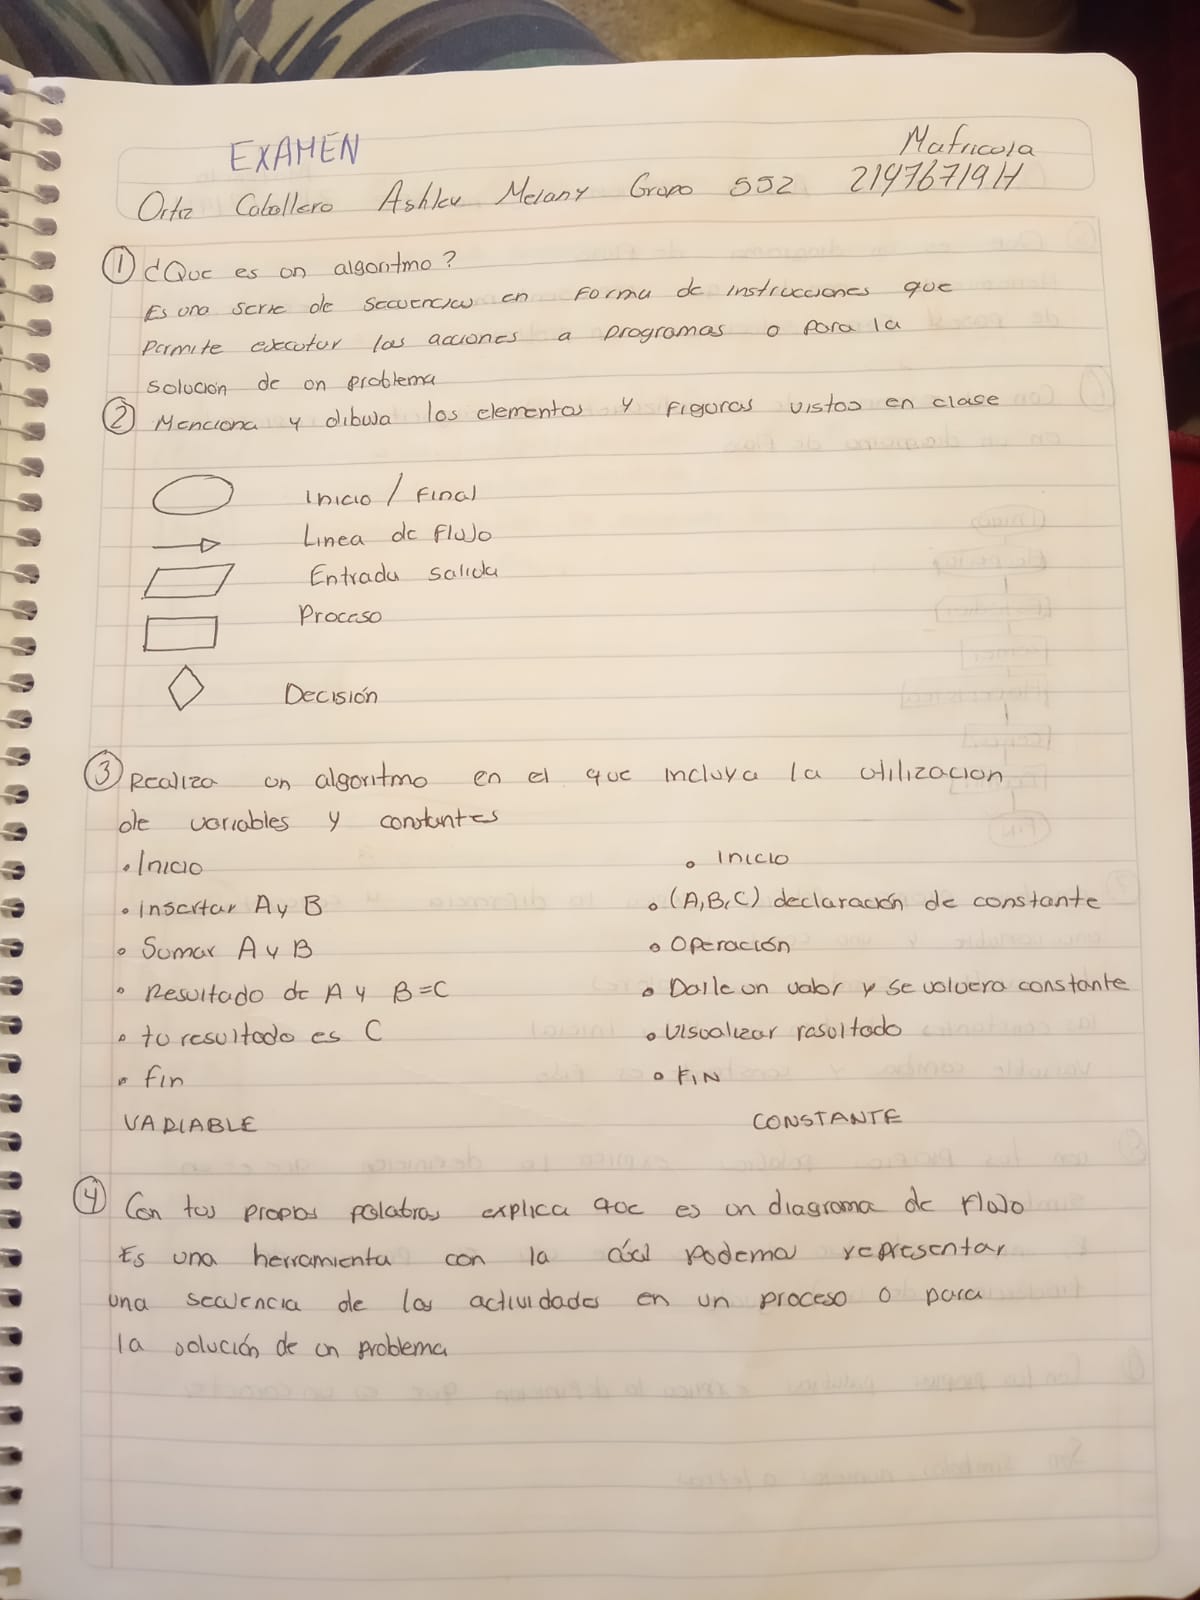 EXAMEN
Matricula
Ortiz Caballero Ashley Melany Grupo 552 21976719H
① ¿Que es un algoritmo?
Es una serie de secuencias en forma de instrucciones que
permite ejecutar las acciones a programas o para la
solución de un problema
② Menciona y dibuja los elementos y figuras vistos en clase
Inicio / Final
Linea de flujo
Entrada salida
Proceso
Decisión
③ Realiza un algoritmo en el que incluya la utilizacion
de variables y constantes
• Inicio
• Insertar A y B
• Sumar A y B
• Resultado de A y B=C
• tu resultado es C
• fin
VARIABLE
• Inicio
• (A,B,C) declaración de constante
• Operación
• Darle un valor y se volvera constante
• Visualizar resultado
• FIN
CONSTANTE
④ Con tus propias palabras explica que es un diagrama de flujo
Es una herramienta con la cúal podemos representar
una secuencia de las actividades en un proceso o para
la solución de un problema